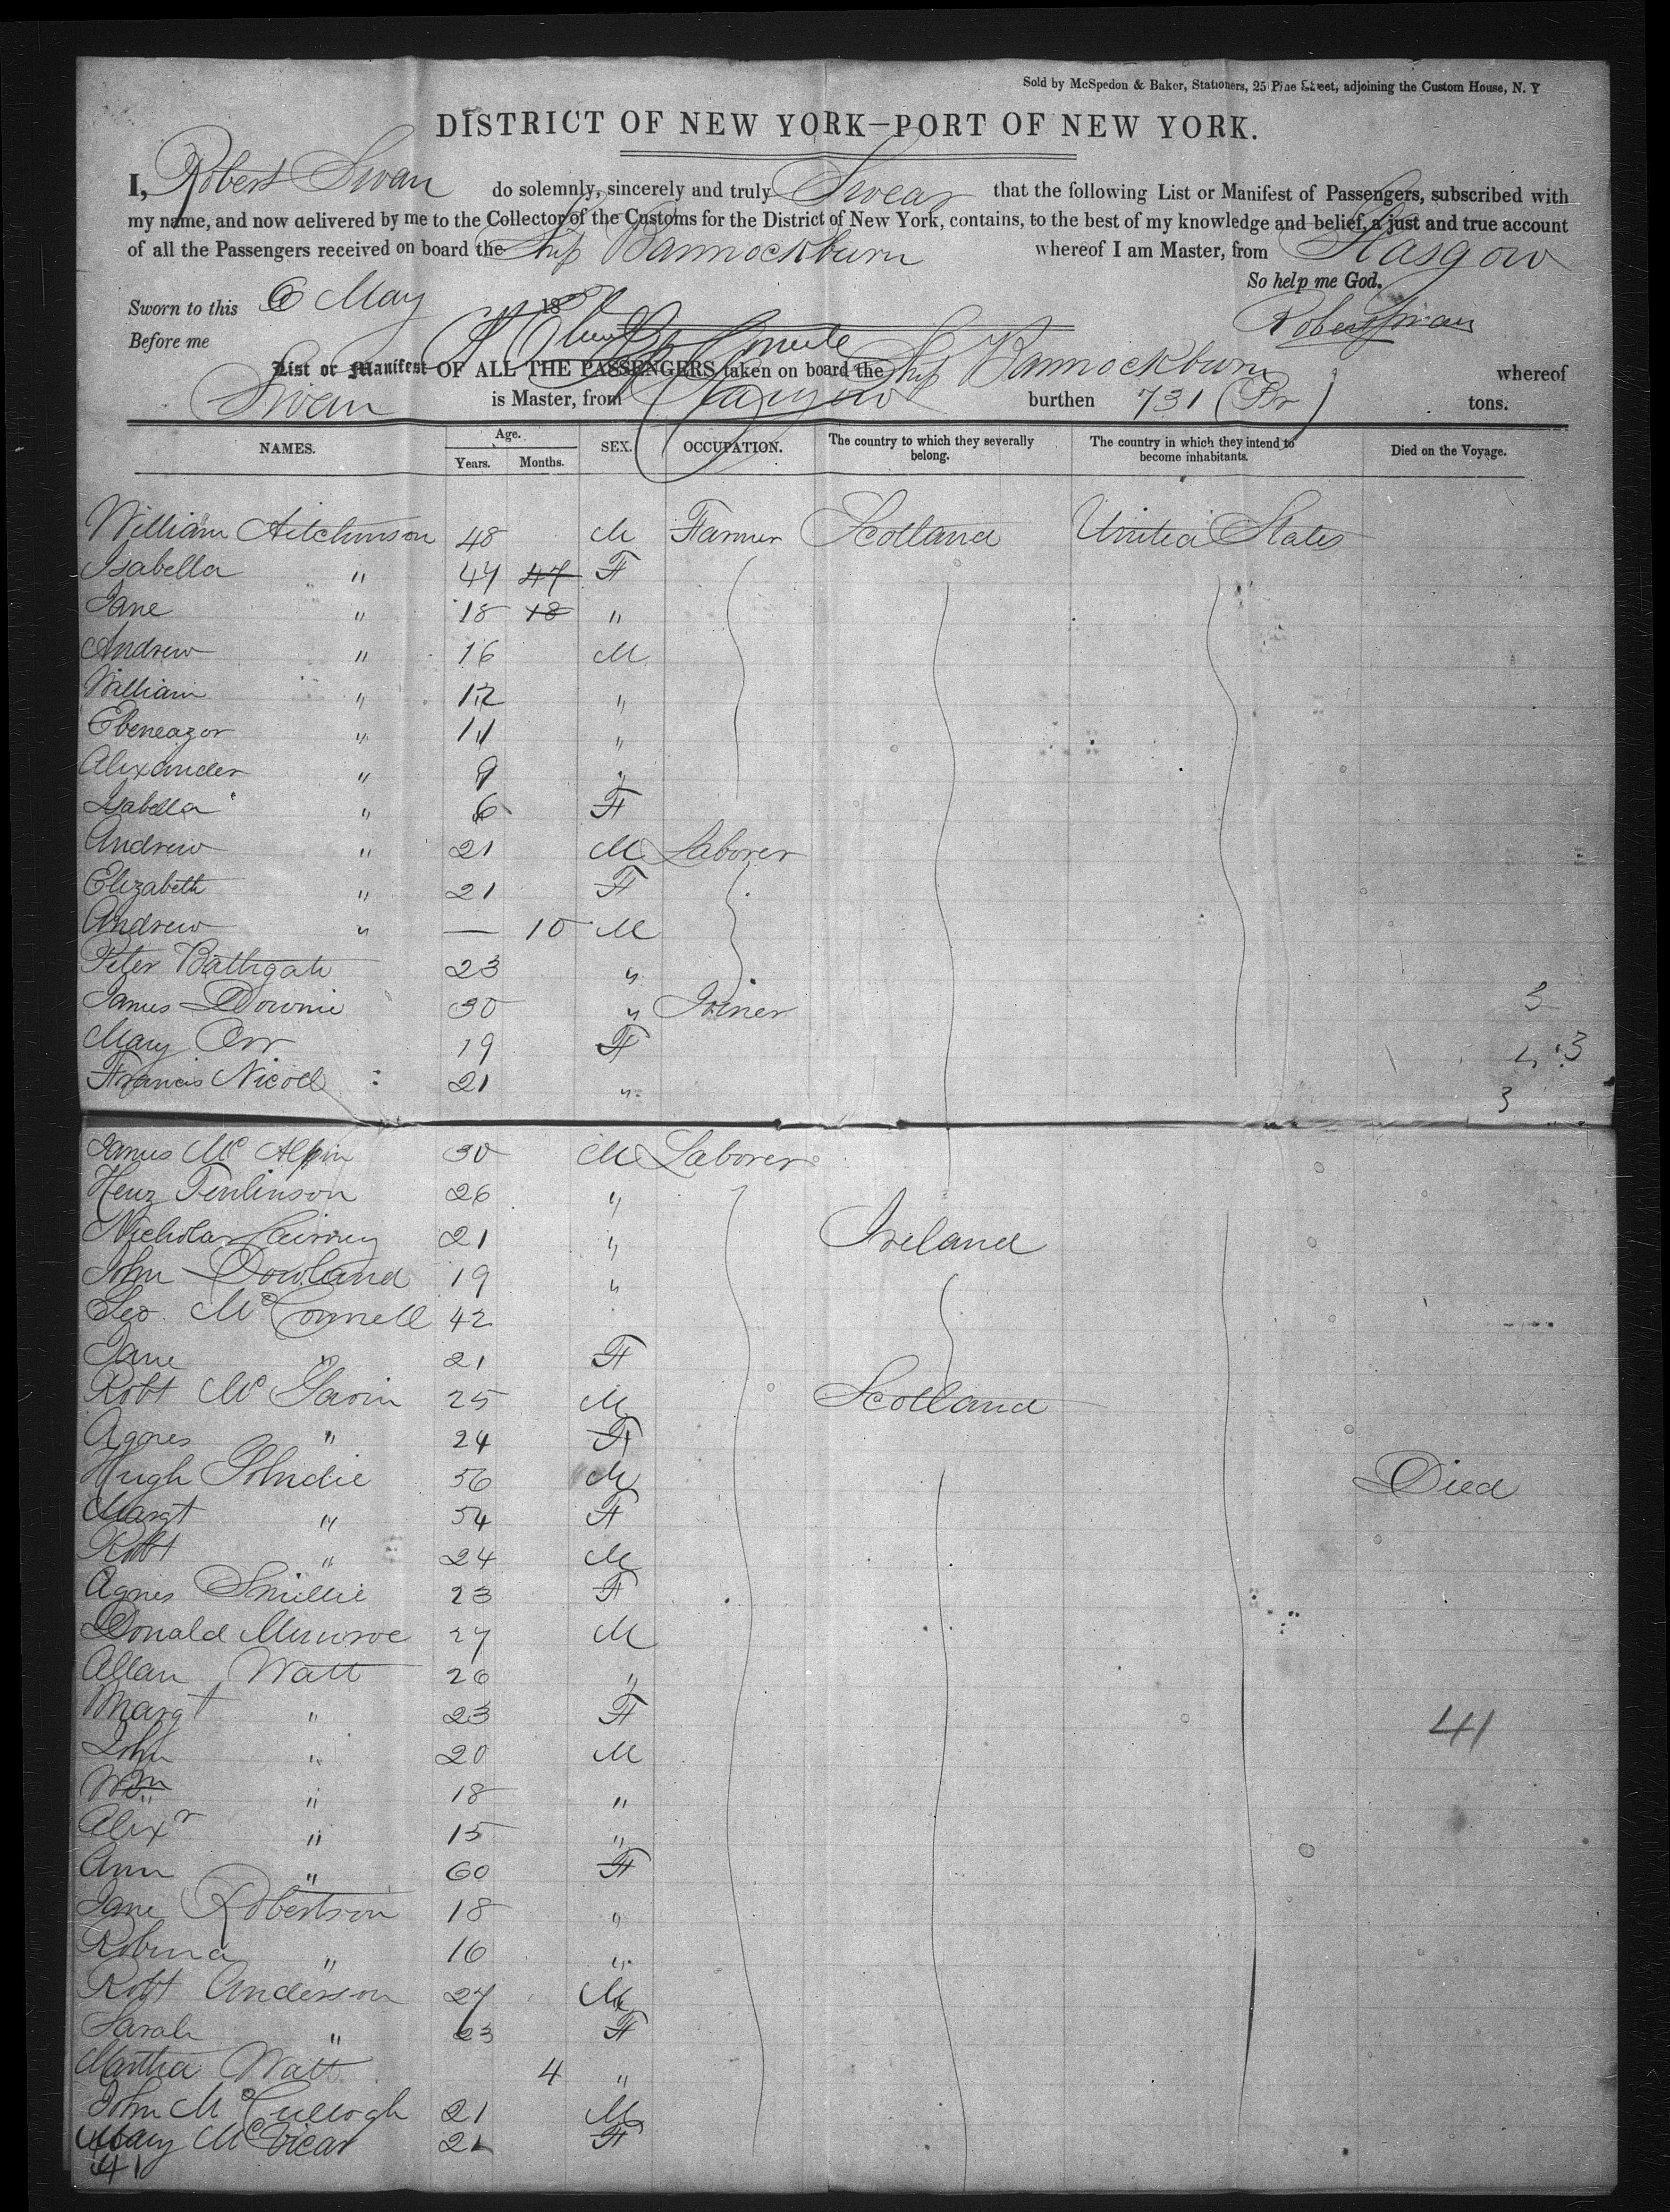 Sold by McSpedon & Baker, Stationers, 25 Pine Street, adjoining the Custom House, N. Y
DISTRICT OF NEW YORK—PORT OF NEW YORK.
I, Robert Swan do solemnly, sincerely and truly Swear that the following List or Manifest of Passengers, subscribed with
my name, and now delivered by me to the Collector of the Customs for the District of New York, contains, to the best of my knowledge and belief, a just and true account
of all the Passengers received on board the Ship Bannockburn whereof I am Master, from Glasgow
So help me God.
Sworn to this 6 May 18
Robert Swan
Before me
List or Manifest OF ALL THE PASSENGERS taken on board the Ship Bannockburn whereof
Swan is Master, from Glasgow burthen 731 (Br) tons.
NAMES. Age. Years. Months. SEX. OCCUPATION. The country to which they severally belong. The country in which they intend to become inhabitants. Died on the Voyage.
William Aitchinson 48 M Farmer Scotland United States
Isabella " 47 47 F
Jane " 18 18 "
Andrew " 16 M
William " 12 "
Ebeneazor " 11 "
Alixander " 9 "
Isabella " 6 F
Andrew " 21 M Laborer
Elizabeth " 21 F
Andrew " — 10 M
Peter Bathgate 23 "
James Downie 30 " Joiner 3
Mary Orr 19 F 3
Francis Nicoll 21 " 3
James Mc Alpin 30 M Laborer
Tenlinson 26 "
Nicholas 21 " Ireland
John Dowland 19 "
Geo Mc Connell 42
Jane " 21 F
Robt Mc Gavin 25 M Scotland
Agnes " 24 F
Hugh 56 M Died
Margt " 54 F
Robt " 24 M
Agnes Smillie 23 F
Donald Munroe 27 M
Allan Watt 26 "
Margt " 23 F 41
John " 20 M
Wm " 18 "
Alixr " 15 "
Ann " 60 F
Jane Robertson 18 "
Robina " 16 "
Robt Anderson 27 M
Sarah " 23 F
Martha Watt 4 "
John Mc Cullogh 21 M
Mary Mc Vicar 21 F
41